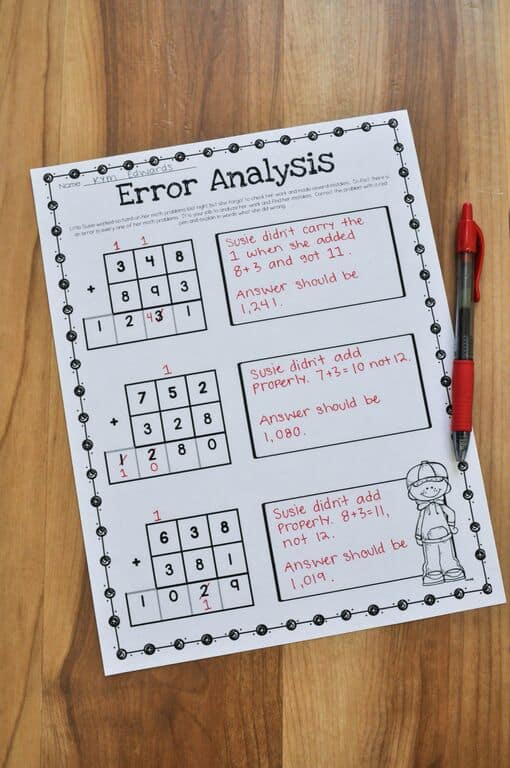 Name Kym Edwards
Error Analysis
Little Susie worked so hard on her math problems last night, but she forgot to check her work and made several mistakes. In fact, there is
an error in every one of her math problems. It is your job to analyze her work and find her mistakes. Correct the problem with a red
pen and explain in words what she did wrong.
1 1
3 4 8
+ 8 9 3
1 2 4 3 1
Susie didn't carry the
1 when she added
8+3 and got 11.
Answer should be
1,241.
1
7 5 2
+ 3 2 8
1 2 8 0
1 0
Susie didn't add
properly. 7+3=10 not 12.
Answer should be
1,080.
1
6 3 8
+ 3 8 1
1 0 2 9
1
Susie didn't add
properly. 8+3=11,
not 12.
Answer should be
1,019.